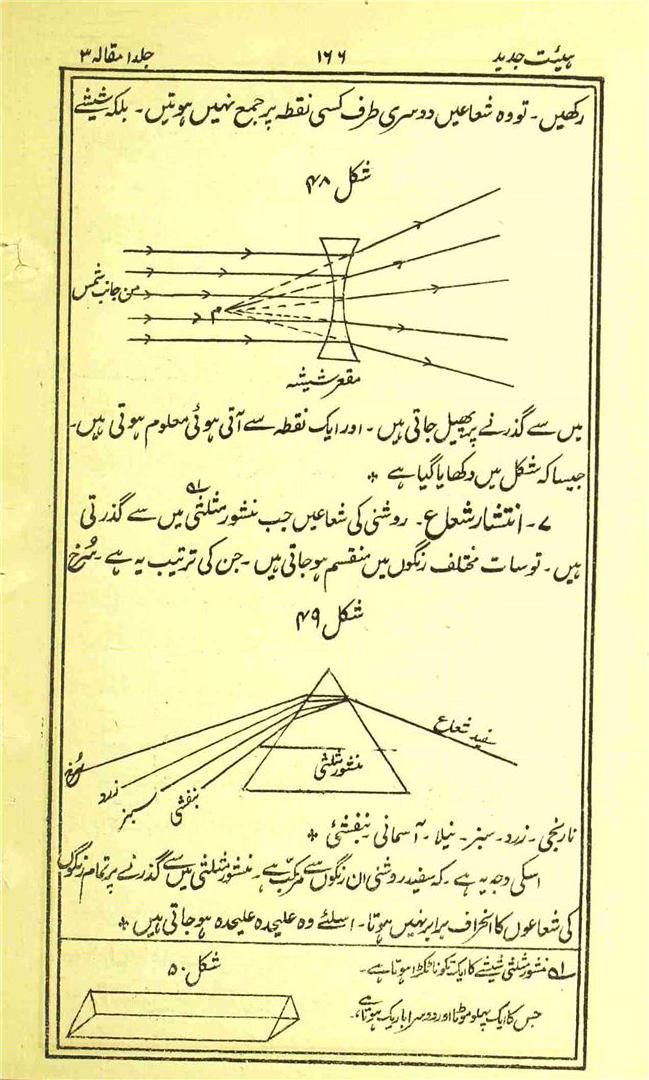 ہیئت جدید ۱۶۶ جلد ۱ مقالہ ۳
رکھیں۔ تو وہ شعاعیں دوسری طرف کسی نقطہ پر جمع نہیں ہوتیں۔ بلکہ شیشے
شکل ۴۸
من جانب شمس
م
مقعر شیشہ
میں سے گذرنے پر پھیل جاتی ہیں۔ اور ایک نقطہ سے آتی ہوئی معلوم ہوتی ہیں۔
جیسا کہ شکل میں دکھایا گیا ہے *
۷۔ انتشار شعاع۔ روشنی کی شعاعیں جب منشور مثلثی ۵۱ میں سے گذرتی
ہیں۔ تو سات مختلف رنگوں میں منقسم ہو جاتی ہیں۔ جن کی ترتیب یہ ہے۔ سُرخ
شکل ۴۹
سفید شعاع
منشور مثلثی
سُرخ
زرد
سبز
بنفشی
نارنجی۔ زرد۔ سبز۔ نیلا۔ آسمانی۔ بنفشئی *
اسکی وجہ یہ ہے۔ کہ سفید روشنی ان رنگوں سے مرکب ہے۔ منشور مثلثی میں سے گذرنے پر تمام رنگوں
کی شعاعوں کا انحراف برابر نہیں ہوتا۔ اسلئے وہ علیحدہ علیحدہ ہو جاتی ہیں *
۵۱ منشور مثلثی شیشے کا ایک تکونا ٹکڑا ہوتا ہے۔
جس کا ایک پہلو موٹا اور دوسرا باریک ہوتا ہے۔
شکل ۵۰